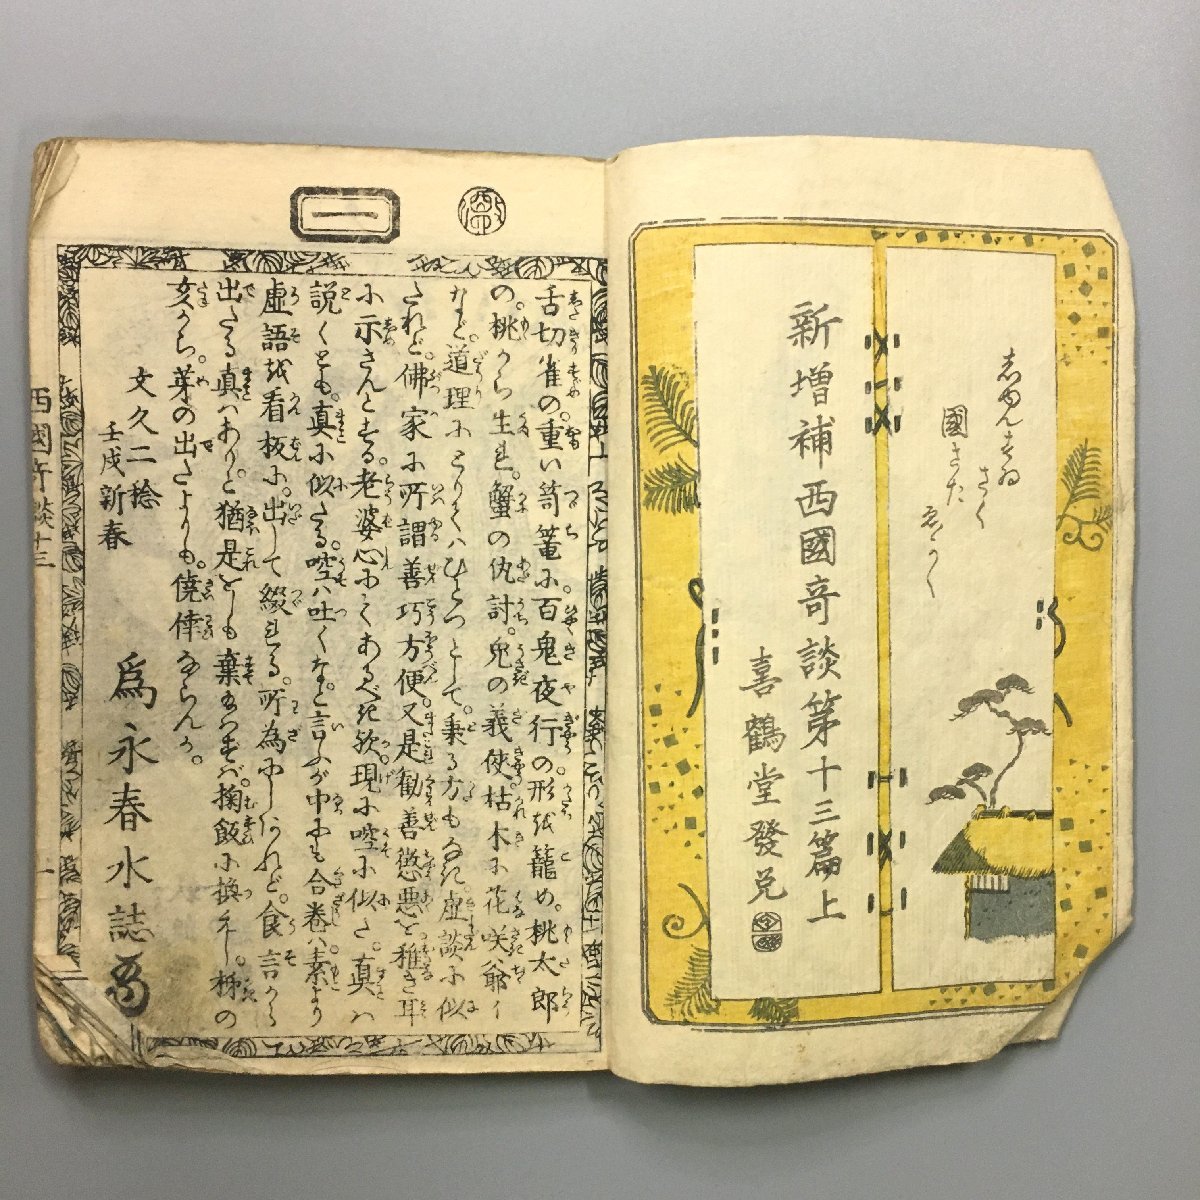 新增補西國奇談第十三篇上
喜鶴堂發兌
國さだ
ゑがく
一
舌切雀の。重い葛篭に百鬼夜行の。形を籠め。桃太郎
の。桃から生れ。蟹の仇討。兎の義侠。枯木に花咲爺イ
など。道理にとりてハひとつとして。乗る方もなき虚談に似
たれど。佛家に所謂善巧方便。又是勸善懲悪を稚き耳
に示さんとする。老婆心にてあるべき歟。現に啌に似た。真ハ
説くとも。真に似たる。啌ハ吐くなと言ふが中にも合巻ハ素より
虚語を看板に。出して綴れる。所為にしあれど。食言から
出たる真ハありと。猶是をしも棄玉はずバ。掬飯に換ヘし。柿の
久二稔
文久二稔
壬戌新春
爲永春水誌
西國奇談十三
一